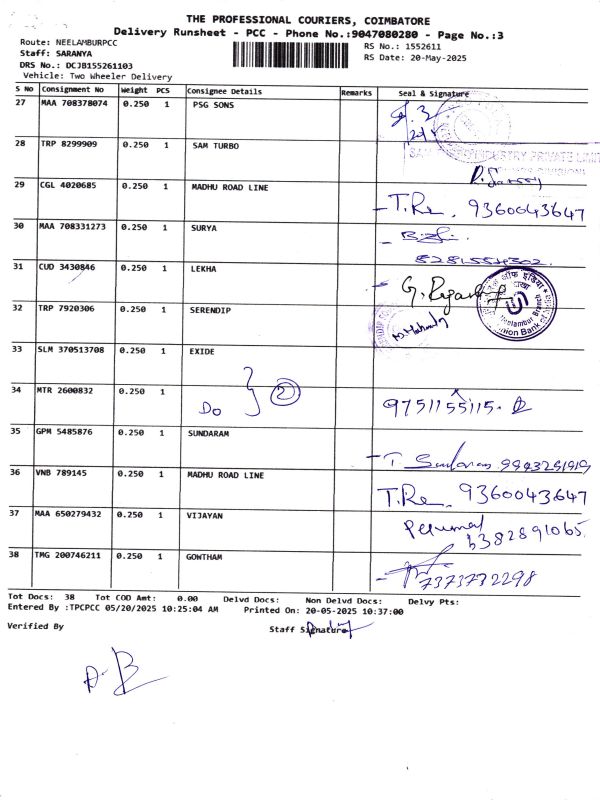 THE PROFESSIONAL COURIERS, COIMBATORE
Delivery Runsheet - PCC - Phone No.:9047080280 - Page No.:3
Route: NEELAMBURPCC
Staff: SARANYA
DRS No.: DCJB155261103
Vehicle: Two Wheeler Delivery
RS No.: 1552611
RS Date: 20-May-2025
S No Consignment No Weight PCS Consignee Details Remarks Seal & Signature
27 MAA 708378074 0.250 1 PSG SONS
28 TRP 8299909 0.250 1 SAM TURBO
INDUSTRY PRIVATE LIMIT
29 CGL 4020685 0.250 1 MADHU ROAD LINE T.Re. 9360043647
30 MAA 708331273 0.250 1 SURYA
31 CUD 3430846 0.250 1 LEKHA
Neelambur Branch
Union Bank of
32 TRP 7920306 0.250 1 SERENDIP
33 SLM 370513708 0.250 1 EXIDE
34 MTR 2600832 0.250 1 Do } 2 9751155115
35 GPM 5485876 0.250 1 SUNDARAM T Sundaram
36 VNB 789145 0.250 1 MADHU ROAD LINE T.Re. 9360043647
37 MAA 650279432 0.250 1 VIJAYAN Perumal 6382891065
38 TMG 200746211 0.250 1 GOWTHAM 7373772298
Tot Docs: 38 Tot COD Amt: 0.00 Delvd Docs: Non Delvd Docs: Delvy Pts:
Entered By :TPCPCC 05/20/2025 10:25:04 AM Printed On: 20-05-2025 10:37:00
Verified By Staff Signature